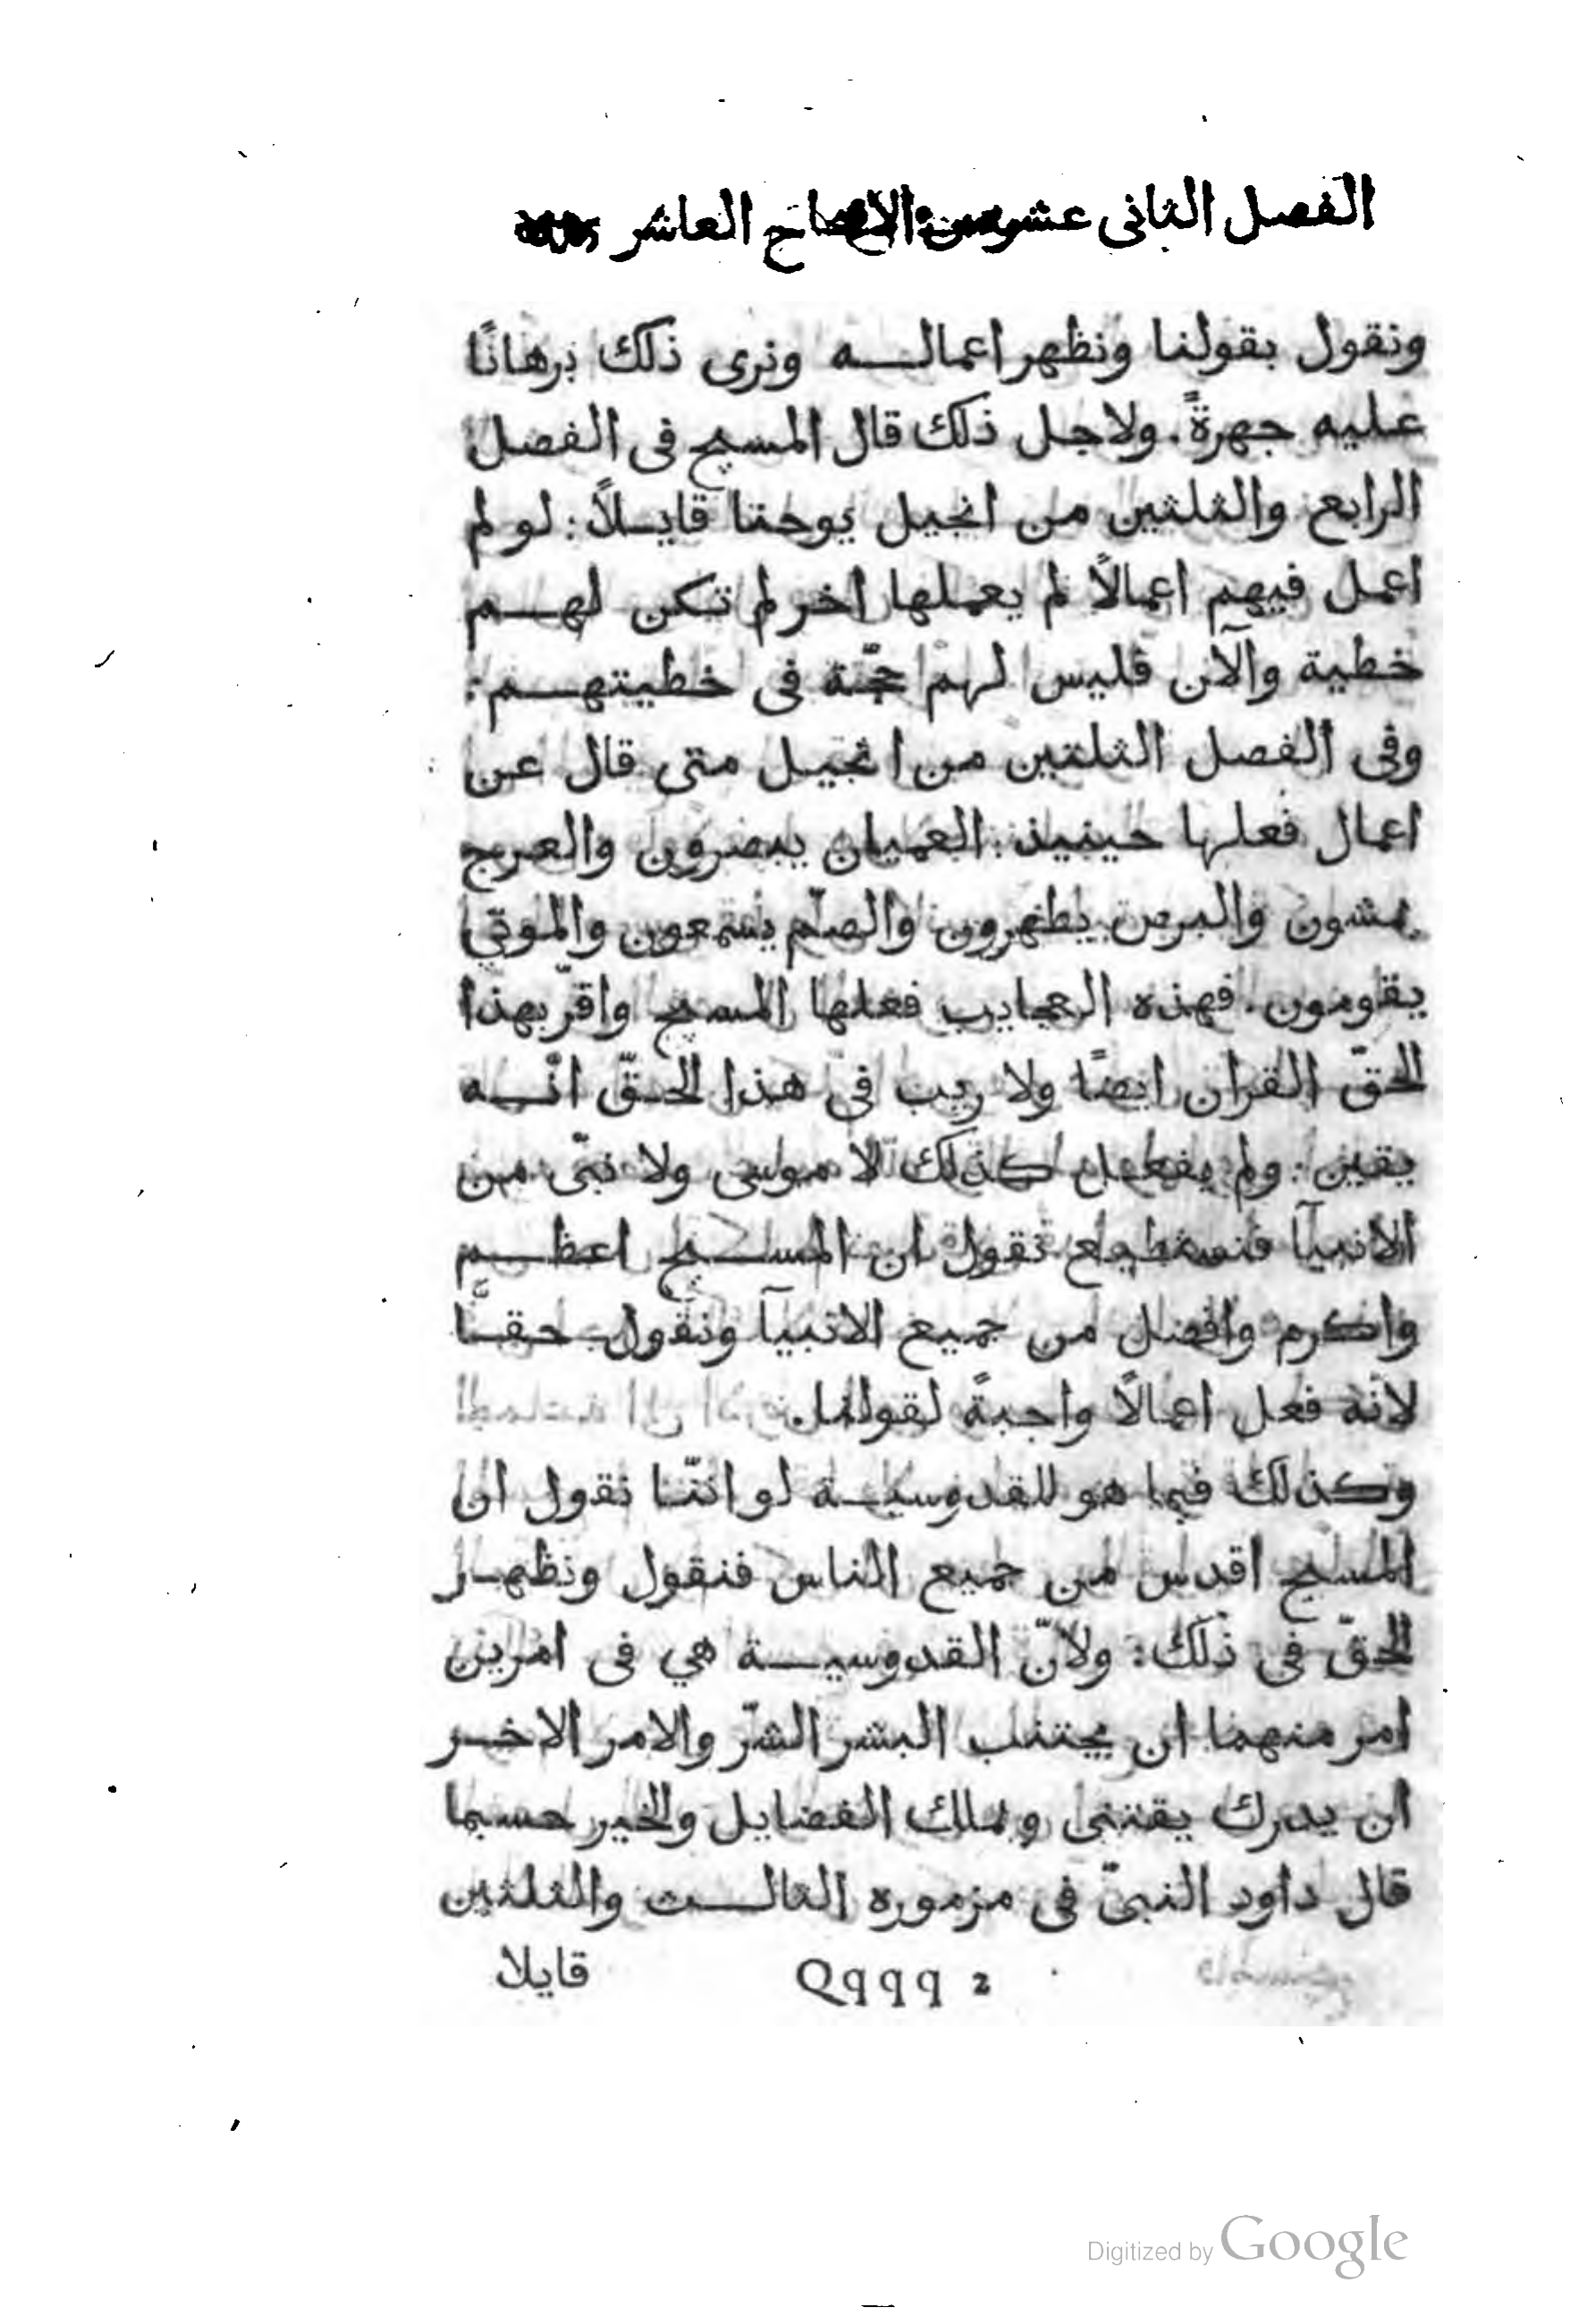 الفصل الثانى عشر من الاصحاح العاشر
ونقول بقولنا ونظهر اعماله ونرى ذلك برهانًا
عليه جهرةً. ولاجل ذلك قال المسيح فى الفصل
الرابع والثلثين من انجيل يوحنا قايلاً: لو لم
اعمل فيهم اعمالاً لم يعملها اخر لم تكن لهم
خطية والآن فليس لهم حجّة فى خطيتهم:
وفى الفصل الثلثين من انجيل متى قال عن
اعمال فعلها حينيذ: العميان يبصرون والعرج
يمشون والبرص يطهرون والصّم يسمعون والموتى
يقومون. فهذه العجايب فعلها المسيح واقرّ بهذا
الحقّ القران ايضًا ولا ريب فى هذا الحقّ انّه
يقين: ولم يفعل كذلك لا موسى ولا نبىّ من
الانبيآ فنستطيع نقول ان المسيح اعظم
واكرم وافضل من جميع الانبيآ ونقول حقًّا
لانّه فعل اعمالاً واجبةً لقولنا.
وكذلك فيما هو للقدوسية لو انّنا نقول ان
المسيح اقدس من جميع الناس فنقول ونظهر
الحقّ فى ذلك: ولانّ القدوسية هي فى امرين
امر منهما ان يجتنب البشر الشرّ والامر الاخر
ان يدرك يقتنى ويملك الفضايل والخير حسبما
قال داود النبىّ فى مزموره الثالث والثلثين
Qqqq 2 قايلا
Digitized by Google